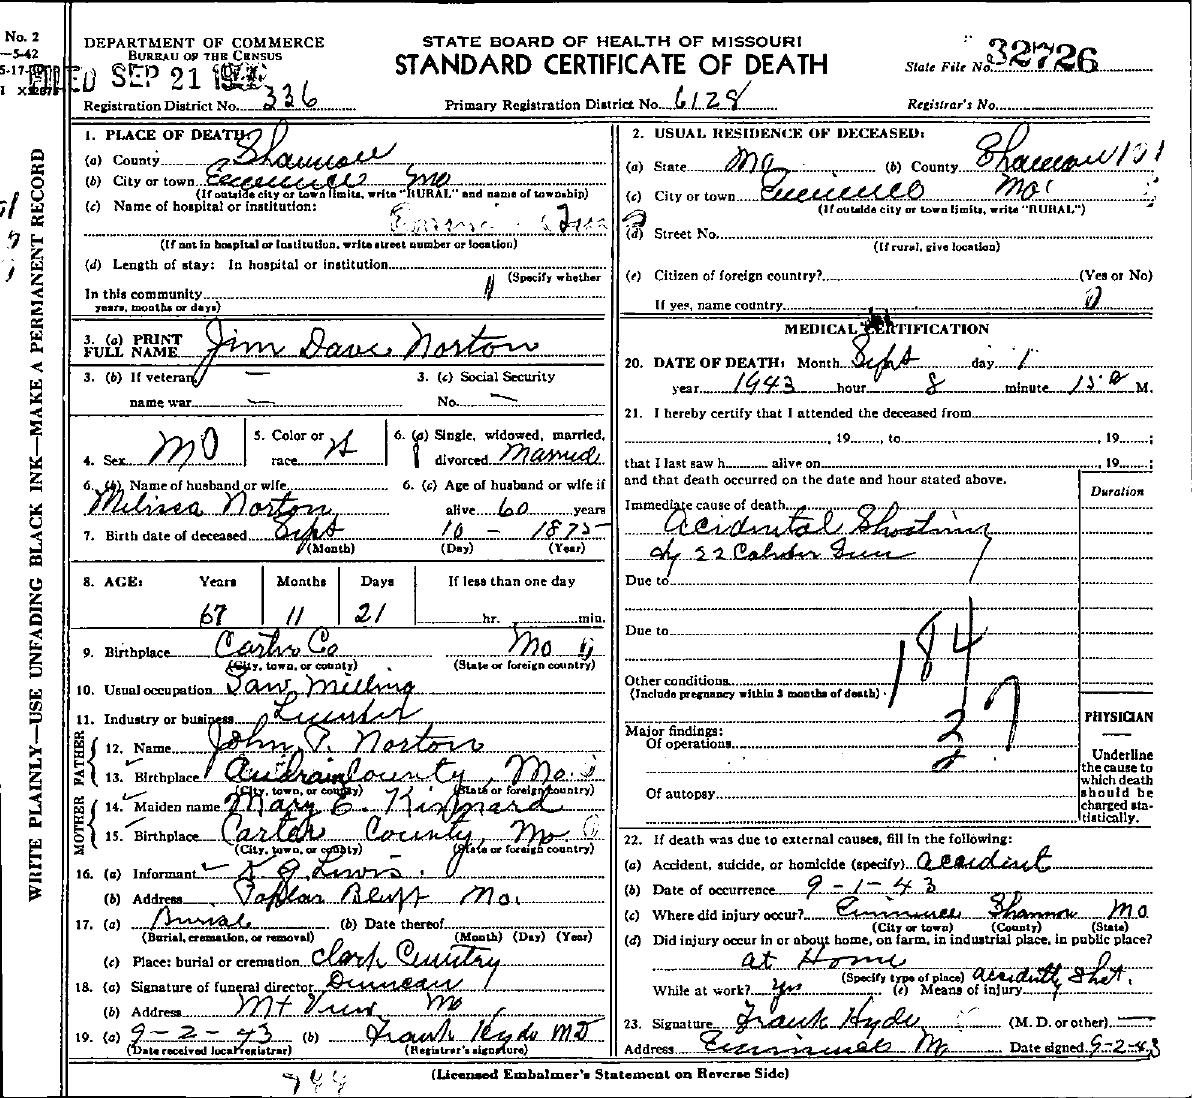 No. 2
—5-42
5-17-
DEPARTMENT OF COMMERCE
BUREAU OF THE CENSUS
FILED SEP 21
STATE BOARD OF HEALTH OF MISSOURI
STANDARD CERTIFICATE OF DEATH
State File No. 32726
Registration District No. 336
Primary Registration District No. 6128
Registrar's No.
WRITE PLAINLY—USE UNFADING BLACK INK—MAKE A PERMANENT RECORD
1. PLACE OF DEATH:
(a) County Shannon
(b) City or town Eminence Mo
(If outside city or town limits, write "RURAL" and name of township)
(c) Name of hospital or institution:
(If not in hospital or institution, write street number or location)
(d) Length of stay: In hospital or institution
(Specify whether
In this community
years, months or days)
3. (a) PRINT FULL NAME Jim Dave Norton
3. (b) If veteran, name war —
3. (c) Social Security No. —
4. Sex M
5. Color or race W
6. (a) Single, widowed, married, divorced Married
6. (b) Name of husband or wife Melissa Norton
6. (c) Age of husband or wife if alive 60 years
7. Birth date of deceased Sept 10 - 1875
(Month) (Day) (Year)
8. AGE: Years Months Days If less than one day
67 11 21 hr. min.
9. Birthplace Carter Co Mo
(City, town, or county) (State or foreign country)
10. Usual occupation Saw Milling
11. Industry or business Lumber
FATHER
12. Name John P. Norton
13. Birthplace Audrain County, Mo.
(City, town, or county) (State or foreign country)
MOTHER
14. Maiden name Mary E. Kinnard
15. Birthplace Carter County, Mo
(City, town, or county) (State or foreign country)
16. (a) Informant K G Lewis.
(b) Address Poplar Bluff Mo.
17. (a) Burial (b) Date thereof
(Burial, cremation, or removal) (Month) (Day) (Year)
(c) Place: burial or cremation Clark Cemetry
18. (a) Signature of funeral director Duncan
(b) Address Mt View Mo
19. (a) 9-2-43 (b) Frank Hyde MD
(Date received local registrar) (Registrar's signature)
2. USUAL RESIDENCE OF DECEASED:
(a) State Mo (b) County Shannon 101
(c) City or town Eminence Mo.
(If outside city or town limits, write "RURAL")
(d) Street No.
(If rural, give location)
(e) Citizen of foreign country? (Yes or No)
If yes, name country 0
MEDICAL CERTIFICATION
20. DATE OF DEATH: Month Sept day 1
year 1943 hour 8 minute 15 M.
21. I hereby certify that I attended the deceased from
, 19 , to , 19 ;
that I last saw h alive on , 19 ;
and that death occurred on the date and hour stated above.
Duration
Immediate cause of death
Acidental Shooting
by 22 Caliber Gun
Due to
Due to
184
Other conditions
(Include pregnancy within 3 months of death)
27
Major findings:
Of operations
Of autopsy
PHYSICIAN
Underline the cause to which death should be charged statistically.
22. If death was due to external causes, fill in the following:
(a) Accident, suicide, or homicide (specify) accident
(b) Date of occurrence 9-1-43
(c) Where did injury occur? Eminence Shannon Mo
(City or town) (County) (State)
(d) Did injury occur in or about home, on farm, in industrial place, in public place?
at Home
(Specify type of place)
While at work? yes (e) Means of injury accidently Shot.
23. Signature Frank Hyde (M. D. or other) —
Address Eminence Mo Date signed 9-2-43
(Licensed Embalmer's Statement on Reverse Side)